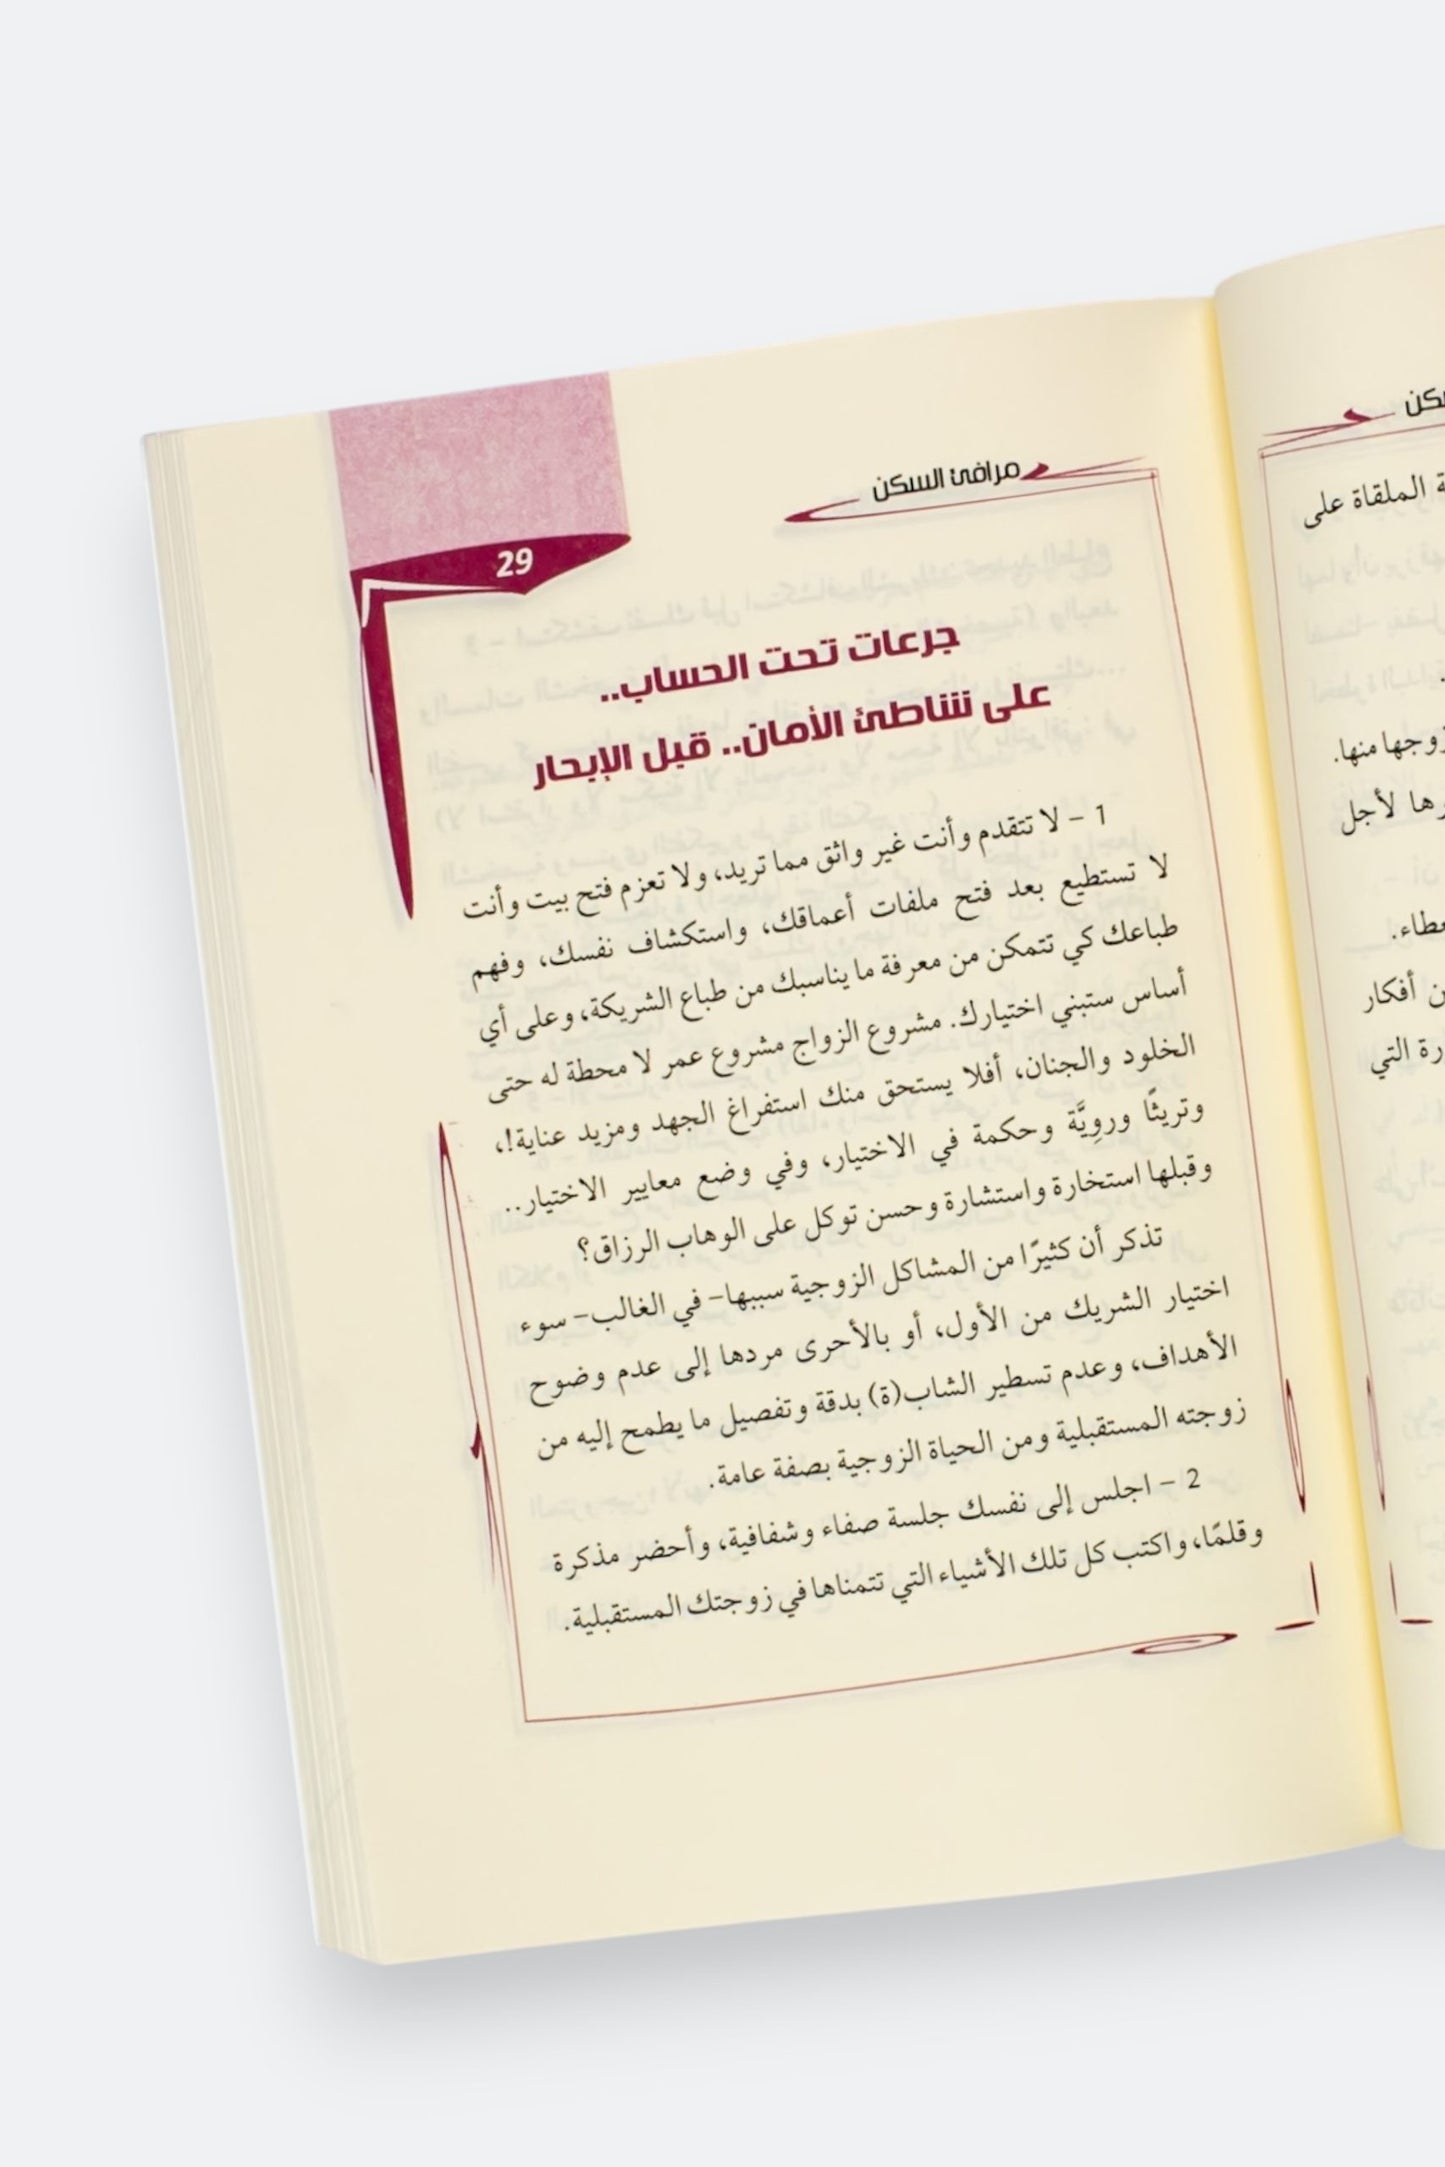 مرافئ السكن
29
جرعات تحت الحساب..
على شاطئ الأمان.. قبل الإبحار
1 – لا تتقدم وأنت غير واثق مما تريد، ولا تعزم فتح بيت وأنت
لا تستطيع بعد فتح ملفات أعماقك، واستكشاف نفسك، وفهم
طباعك كي تتمكن من معرفة ما يناسبك من طباع الشريكة، وعلى أي
أساس ستبني اختيارك. مشروع الزواج مشروع عمر لا محطة له حتى
الخلود والجنان، أفلا يستحق منك استفراغ الجهد ومزيد عناية!،
وتريثًا ورويَّة وحكمة في الاختيار، وفي وضع معايير الاختيار..
وقبلها استخارة واستشارة وحسن توكل على الوهاب الرزاق؟
تذكر أن كثيرًا من المشاكل الزوجية سببها– في الغالب– سوء
اختيار الشريك من الأول، أو بالأحرى مردها إلى عدم وضوح
الأهداف، وعدم تسطير الشاب(ة) بدقة وتفصيل ما يطمح إليه من
زوجته المستقبلية ومن الحياة الزوجية بصفة عامة.
2 – اجلس إلى نفسك جلسة صفاء وشفافية، وأحضر مذكرة
وقلمًا، واكتب كل تلك الأشياء التي تتمناها في زوجتك المستقبلية.
الملقاة على
زوجها منها.
لأجل
أفكار
التي